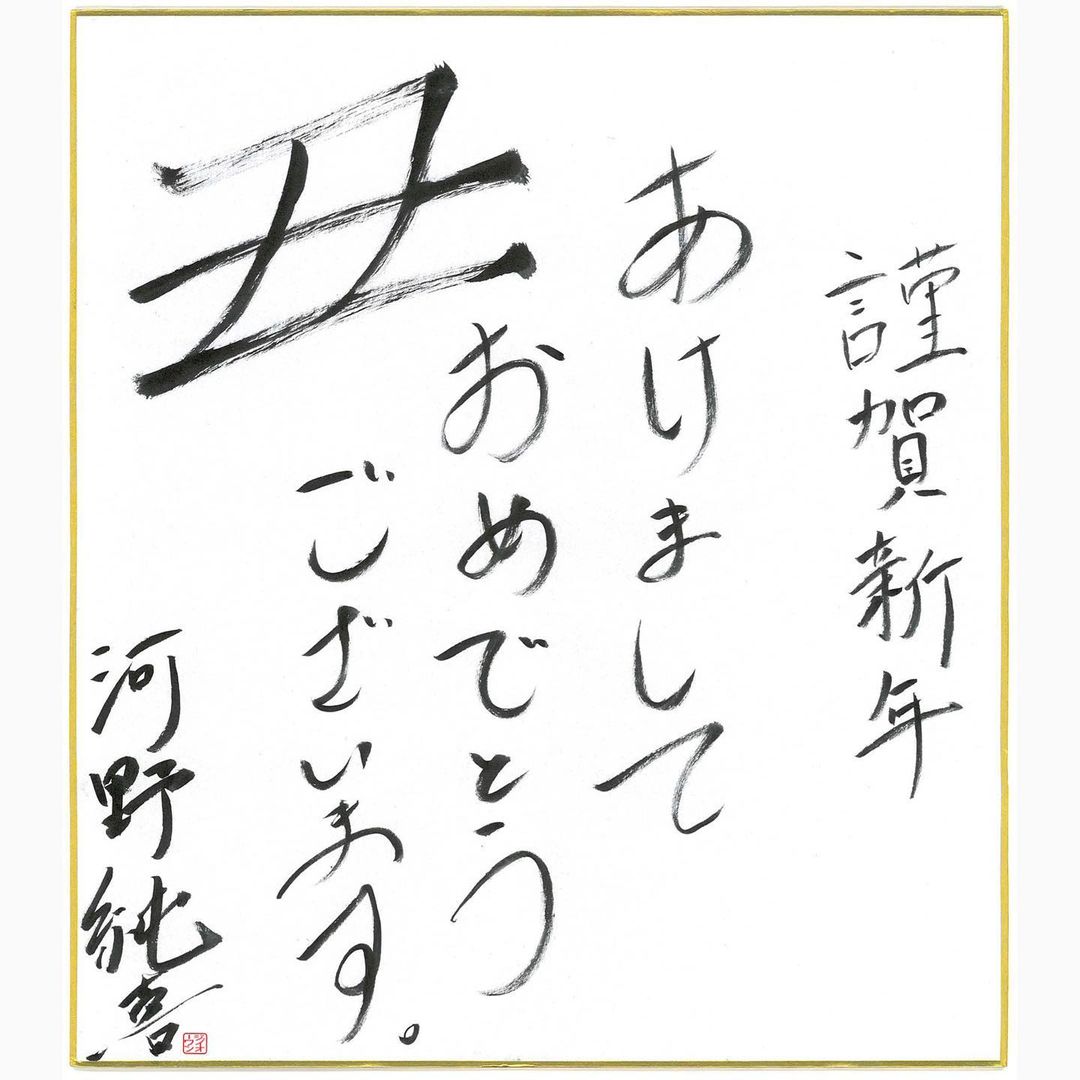 謹賀新年
あけまして
おめでとう
ございます。
丑
河野純喜